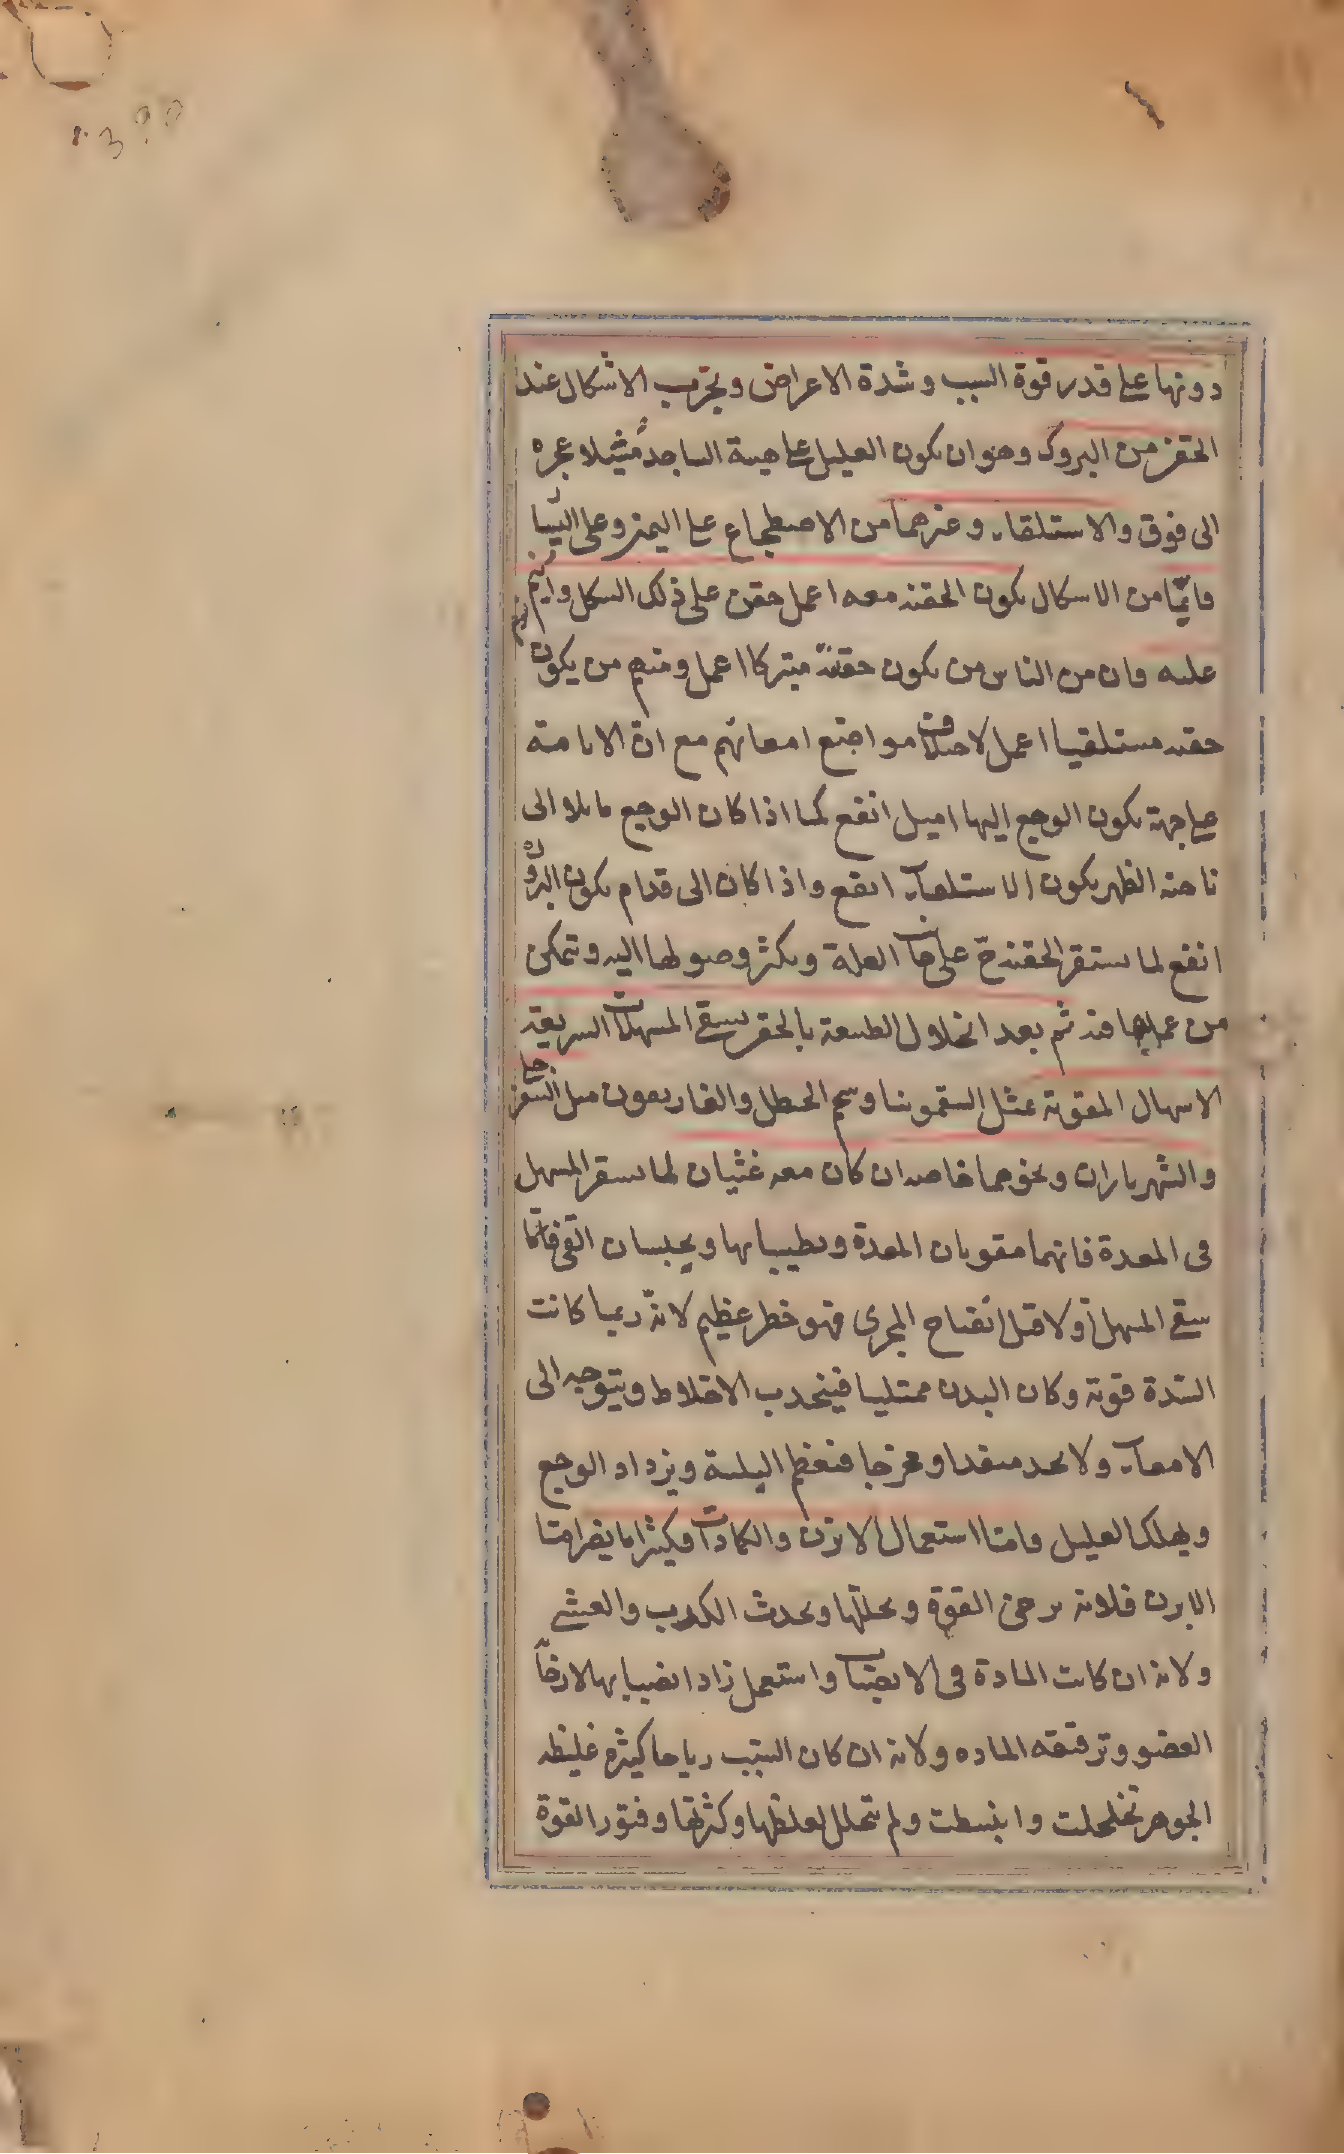 دونها على قدر قوة السبب وشدة الاعراض ويجرب الاشكال عند
الحقن من البروك وهو ان يكون العليل على هيئة الساجد مشيلا عجزه
الى فوق والاستلقاء وغيرهما من الاضطجاع على اليمين وعلى اليسا
فايما من الاشكال يكون الحقنه معه اعمل حقن على ذلك الشكل
عليه فان من الناس من يكون حقنه متبركا اعمل ومنهم من يكون
حقنه مستلقيا اعمل لاختلاف مواضع امعائهم مع ان الانامة
على جهة يكون الوجع اليها اميل انفع كما اذا كان الوجع مايلا الى
ناحية الظهر يكون الاستلقاء انفع واذا كان الى قدام يكون البروك
انفع لما يستقر الحقنة ح على جانب العلة ويكثر وصولها اليه وتمكن
من عملها فيه ثم بعد انحلال الطبيعة بالحقن يسقى المسهلات السريعة
الاسهال المقوية مثل السقمونيا وشحم الحنظل والغاريقون مثل السفرجلي
والشهرياران ونحوهما خاصة ان كان معه غثيان لما يستقر المسهل
فى المعدة فانهما مقويان المعدة ويطيبانها ويحبسان القى فاما
سقى المسهل اولا قبل انفتاح المجرى فهو خطر عظيم لانه ربما كانت
السدة قوية وكان البدن ممتليا فينجذب الاخلاط ويتوجه الى
الامعاء ولا يجد منفذا ومخرجا فيعظم البلية ويزداد الوجع
ويهلك العليل واما استعمال الابزن والكمادات فكثيرا ما يضر اما
الابزن فلانه يرخى القوة ويحللها ويحدث الكرب والغشى
ولانه ان كانت المادة فى الانصباب واستعمل زاد انصبابها لارخاء
العضو وترقيقه المادة ولانه ان كان السبب رياحا كثيرة غليظة
الجوهر تخلخلت وانبسطت ولم تتحلل لغلظها وكثرتها وفتور القوة